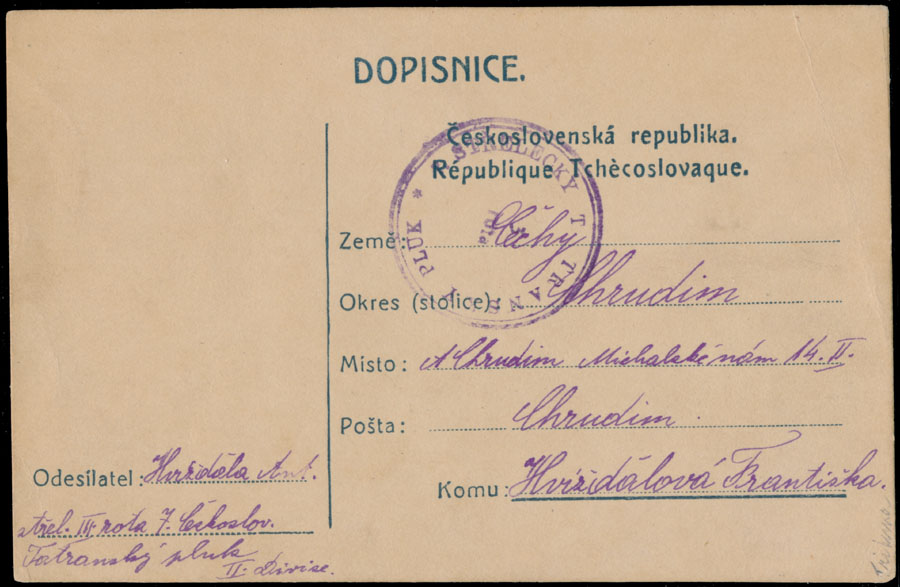 DOPISNICE.
Československá republika.
République Tchècoslovaque.
STŘELECKÝ TATRANSKÝ PLUK *
rota
Země: Čechy
Okres (stolice): Chrudim
Místo: Chrudim Michalské nám 14. II.
Pošta: Chrudim
Komu: Hvížďálová Františka.
Odesílatel: Hvížďála Ant.
střel. III rota 7. Českoslov.
Tatranský pluk
II. Divise.